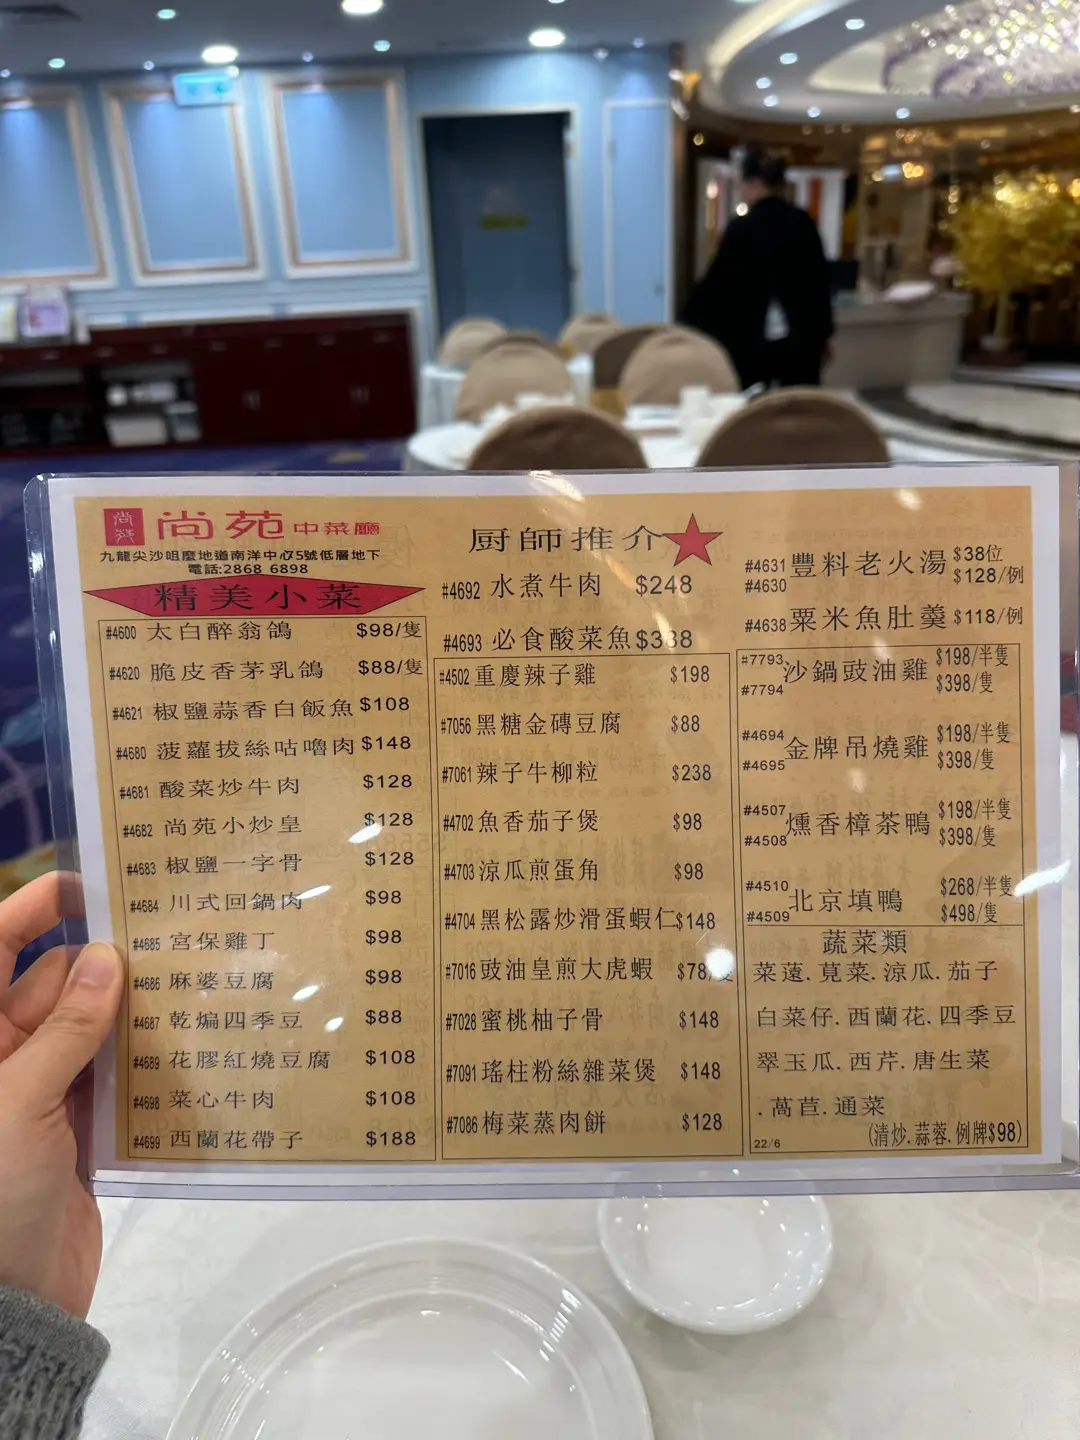 尚苑
尚苑 中菜廳
九龍尖沙咀麼地道南洋中心75號低層地下
電話:2868 6898
精美小菜
#4600 太白醉翁鴿 $98/隻
#4620 脆皮香茅乳鴿 $88/隻
#4621 椒鹽蒜香白飯魚 $108
#4680 菠蘿拔絲咕嚕肉 $148
#4681 酸菜炒牛肉 $128
#4682 尚苑小炒皇 $128
#4683 椒鹽一字骨 $128
#4684 川式回鍋肉 $98
#4685 宮保雞丁 $98
#4686 麻婆豆腐 $98
#4687 乾煸四季豆 $88
#4689 花膠紅燒豆腐 $108
#4698 菜心牛肉 $108
#4699 西蘭花帶子 $188
厨師推介
#4692 水煮牛肉 $248
#4693 必食酸菜魚 $338
#4502 重慶辣子雞 $198
#7056 黑糖金磚豆腐 $88
#7061 辣子牛柳粒 $238
#4702 魚香茄子煲 $98
#4703 涼瓜煎蛋角 $98
#4704 黑松露炒滑蛋蝦仁 $148
#7016 豉油皇煎大虎蝦 $78/隻
#7028 蜜桃柚子骨 $148
#7091 瑤柱粉絲雜菜煲 $148
#7086 梅菜蒸肉餅 $128
#4631 豐料老火湯 $38位
#4630 $128/例
#4638 粟米魚肚羹 $118/例
#7793 沙鍋豉油雞 $198/半隻
#7794 $398/隻
#4694 金牌吊燒雞 $198/半隻
#4695 $398/隻
#4507 燻香樟茶鴨 $198/半隻
#4508 $398/隻
#4510 北京填鴨 $268/半隻
#4509 $498/隻
蔬菜類
菜薳.莧菜.涼瓜.茄子
白菜仔.西蘭花.四季豆
翠玉瓜.西芹.唐生菜
.萵苣.通菜
(清炒.蒜蓉.例牌$98)
22/6